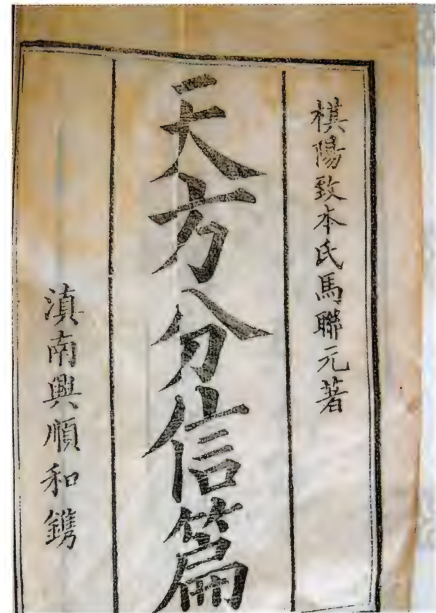 棋陽致本氏馬聯元著
天方分信篇
滇南興順和鐫